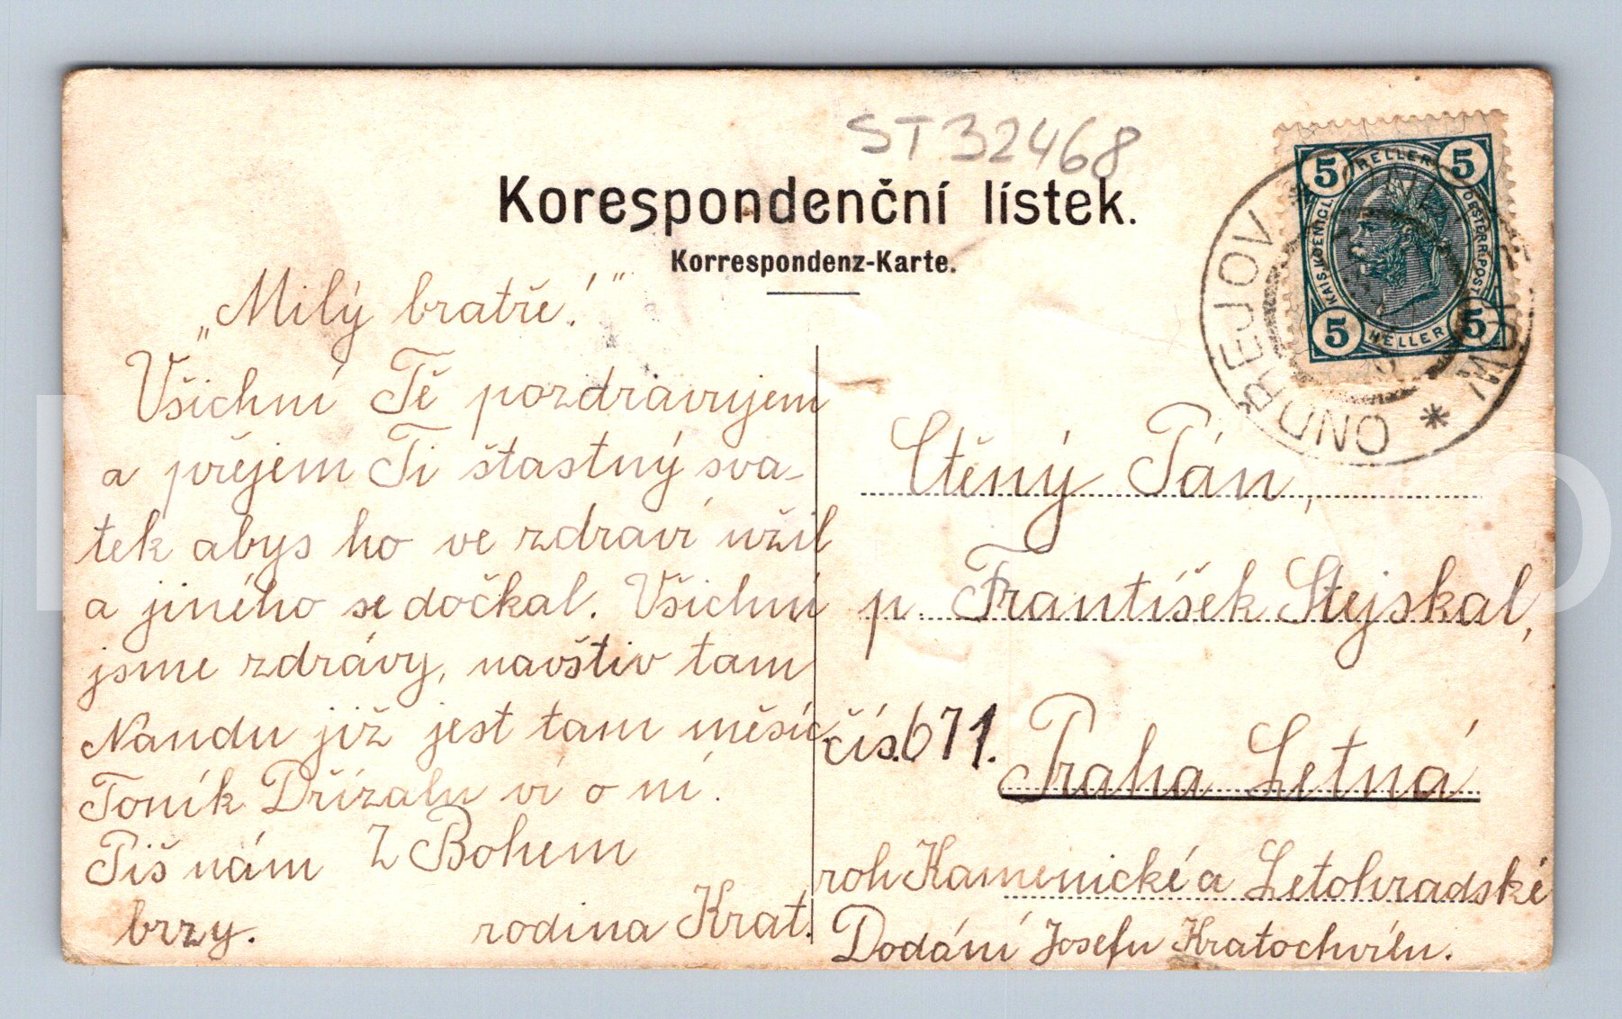 ST32468
Korespondenční lístek.
Korrespondenz-Karte.
5 HELLER 5
KAIS. KOENIGL. OESTERR. POST
5 HELLER 5
ONDŘEJOV
„Milý bratře!"
Všichni Tě pozdravujem
a přejem Ti štastný sva-
tek abys ho ve zdraví užil
a jiného se dočkal. Všichni
jsme zdrávy, navštiv tam
Nandu již jest tam měsíc
Toník Dřízalu ví o ní.
Piš nám Z Bohem
brzy. rodina Krat.
Ctěný Pán,
p. František Stejskal,
čís. 671. Praha Letná
roh Kamenické a Letohradské
Dodání Josefu Kratochvílu.